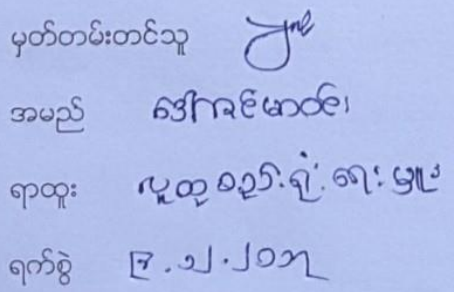 မှတ်တမ်းတင်သူ
အမည် ဒေါ်ခင်မာဝင်း
ရာထူး လူထုစည်းရုံးရေးမှူး
ရက်စွဲ